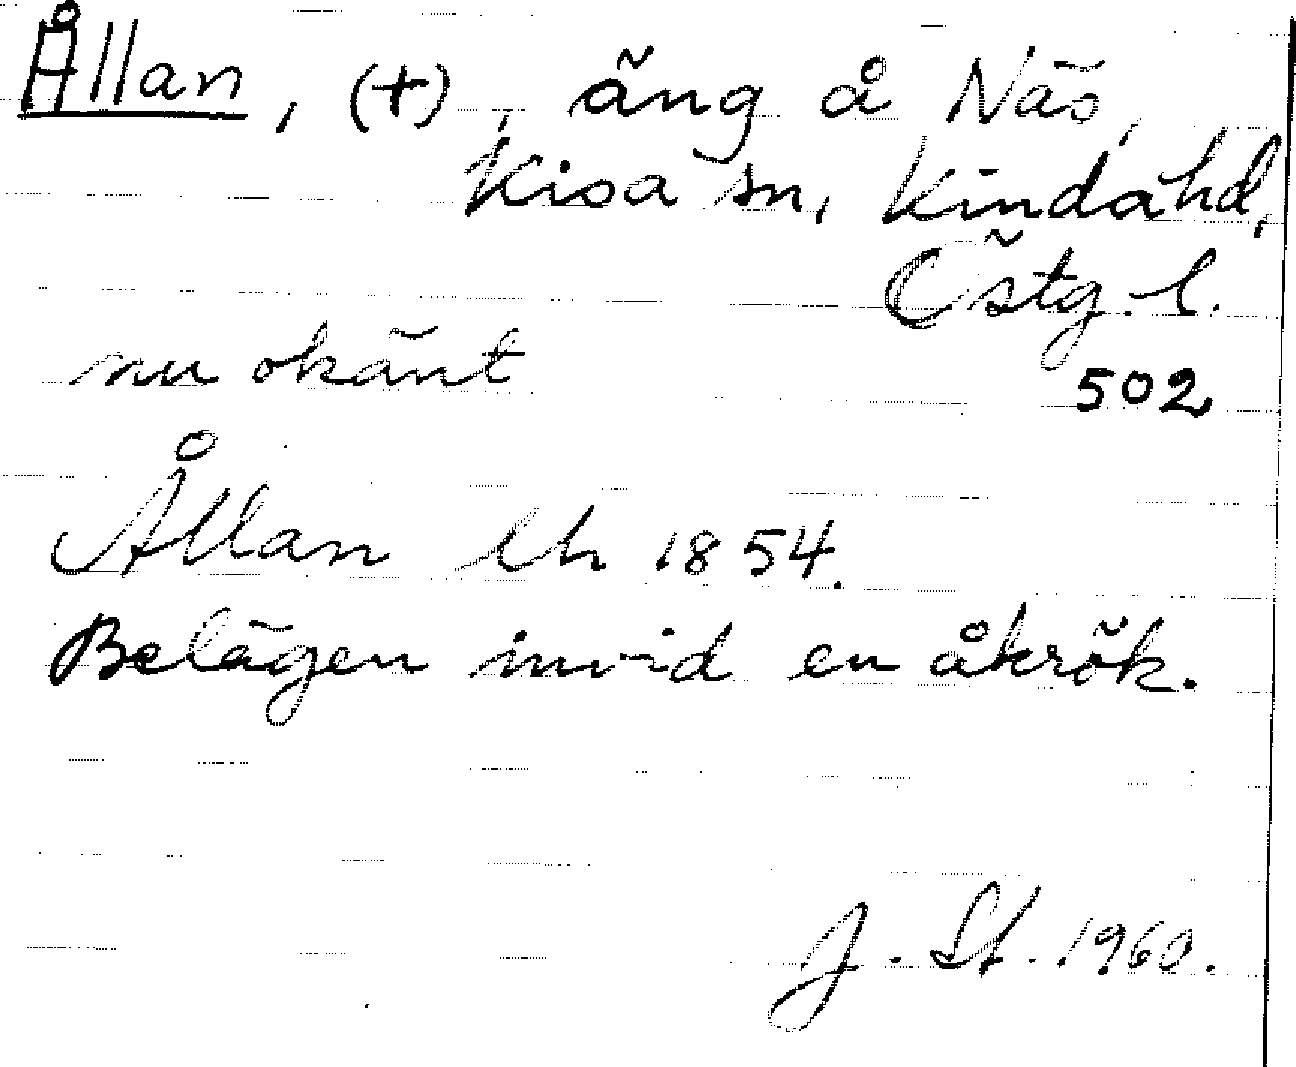 Ållan, (+), äng å Näs,
Kisa sn, Kinda hd,
Östg. l.
nu okänt
502
Ållan lh 1854.
Belägen invid en åkrök.
J. St. 1960.